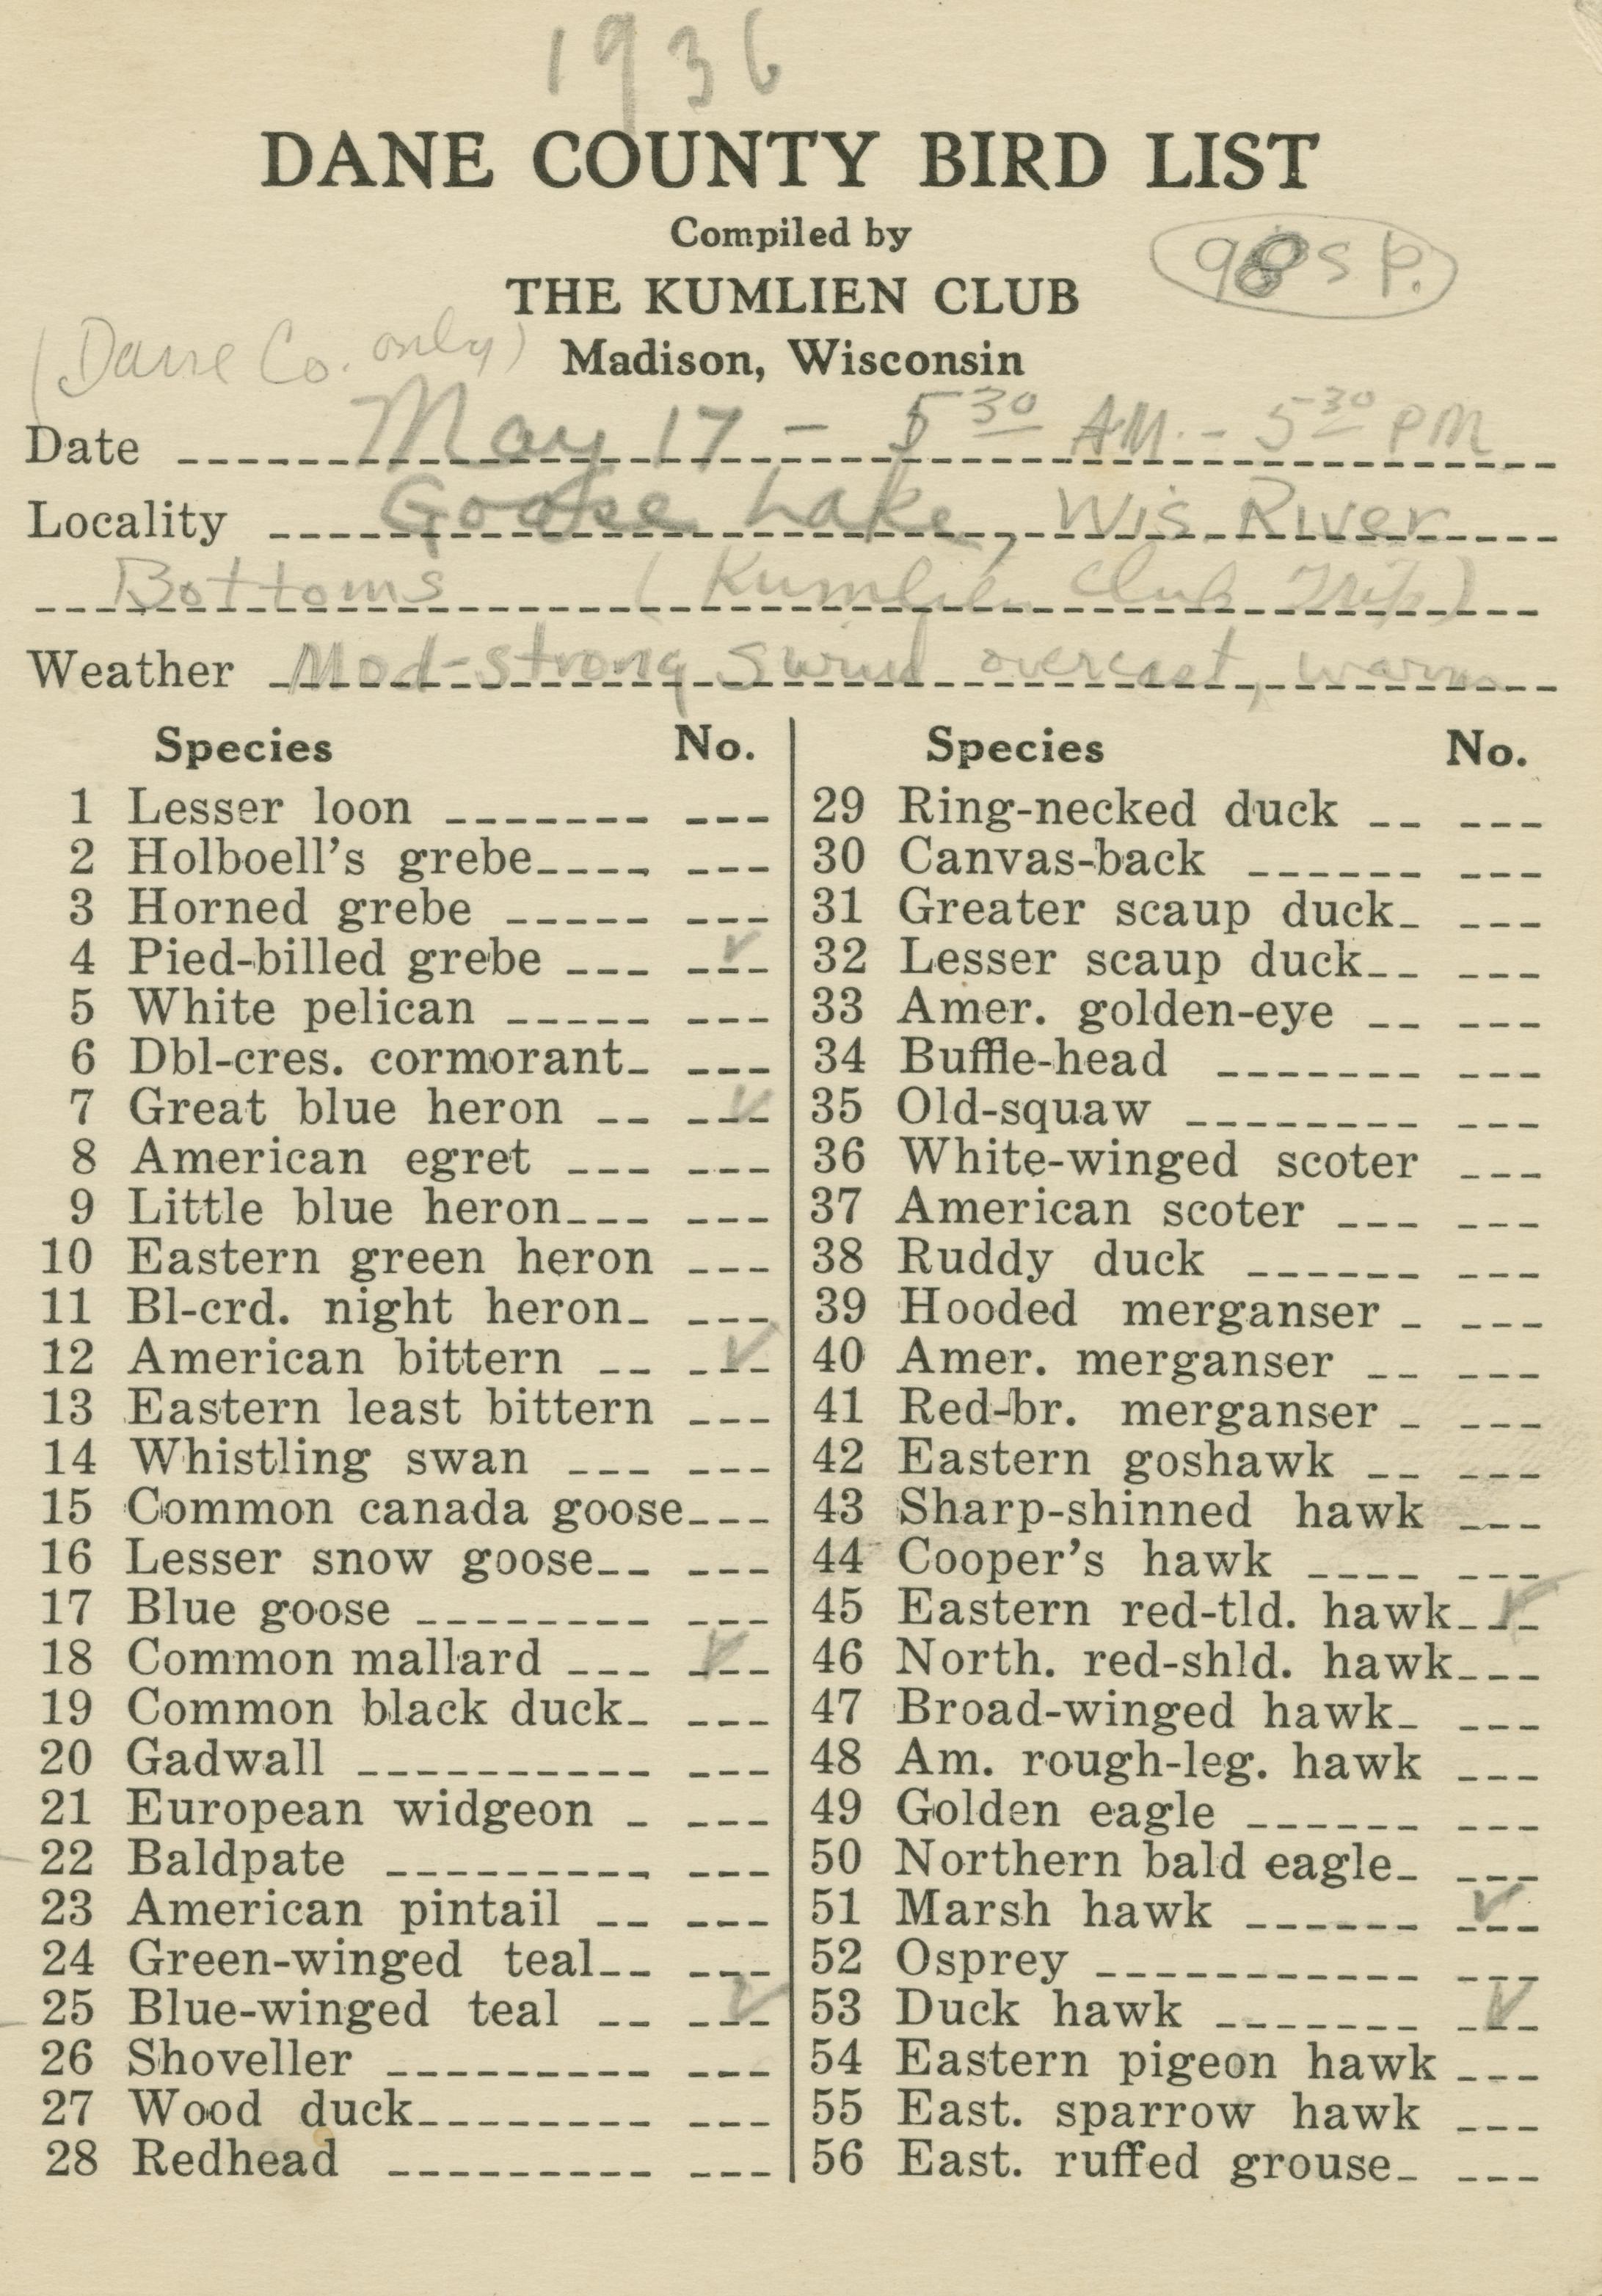 1936
DANE COUNTY BIRD LIST
Compiled by
THE KUMLIEN CLUB
98 sp.
(Dane Co. only)
Madison, Wisconsin
Date May 17 - 5 30 AM. - 5 30 PM
Locality Goose Lake, Wis. River
Bottoms (Kumlien Club Trip)
Weather Mod-strong S wind overcast, warm
Species No.
1 Lesser loon
2 Holboell's grebe
3 Horned grebe
4 Pied-billed grebe ✓
5 White pelican
6 Dbl-cres. cormorant
7 Great blue heron ✓
8 American egret
9 Little blue heron
10 Eastern green heron
11 Bl-crd. night heron
12 American bittern ✓
13 Eastern least bittern
14 Whistling swan
15 Common canada goose
16 Lesser snow goose
17 Blue goose
18 Common mallard ✓
19 Common black duck
20 Gadwall
21 European widgeon
22 Baldpate
23 American pintail
24 Green-winged teal
25 Blue-winged teal ✓
26 Shoveller
27 Wood duck
28 Redhead
Species No.
29 Ring-necked duck
30 Canvas-back
31 Greater scaup duck
32 Lesser scaup duck
33 Amer. golden-eye
34 Buffle-head
35 Old-squaw
36 White-winged scoter
37 American scoter
38 Ruddy duck
39 Hooded merganser
40 Amer. merganser
41 Red-br. merganser
42 Eastern goshawk
43 Sharp-shinned hawk
44 Cooper's hawk
45 Eastern red-tld. hawk ✓
46 North. red-shld. hawk
47 Broad-winged hawk
48 Am. rough-leg. hawk
49 Golden eagle
50 Northern bald eagle
51 Marsh hawk ✓
52 Osprey
53 Duck hawk ✓
54 Eastern pigeon hawk
55 East. sparrow hawk
56 East. ruffed grouse